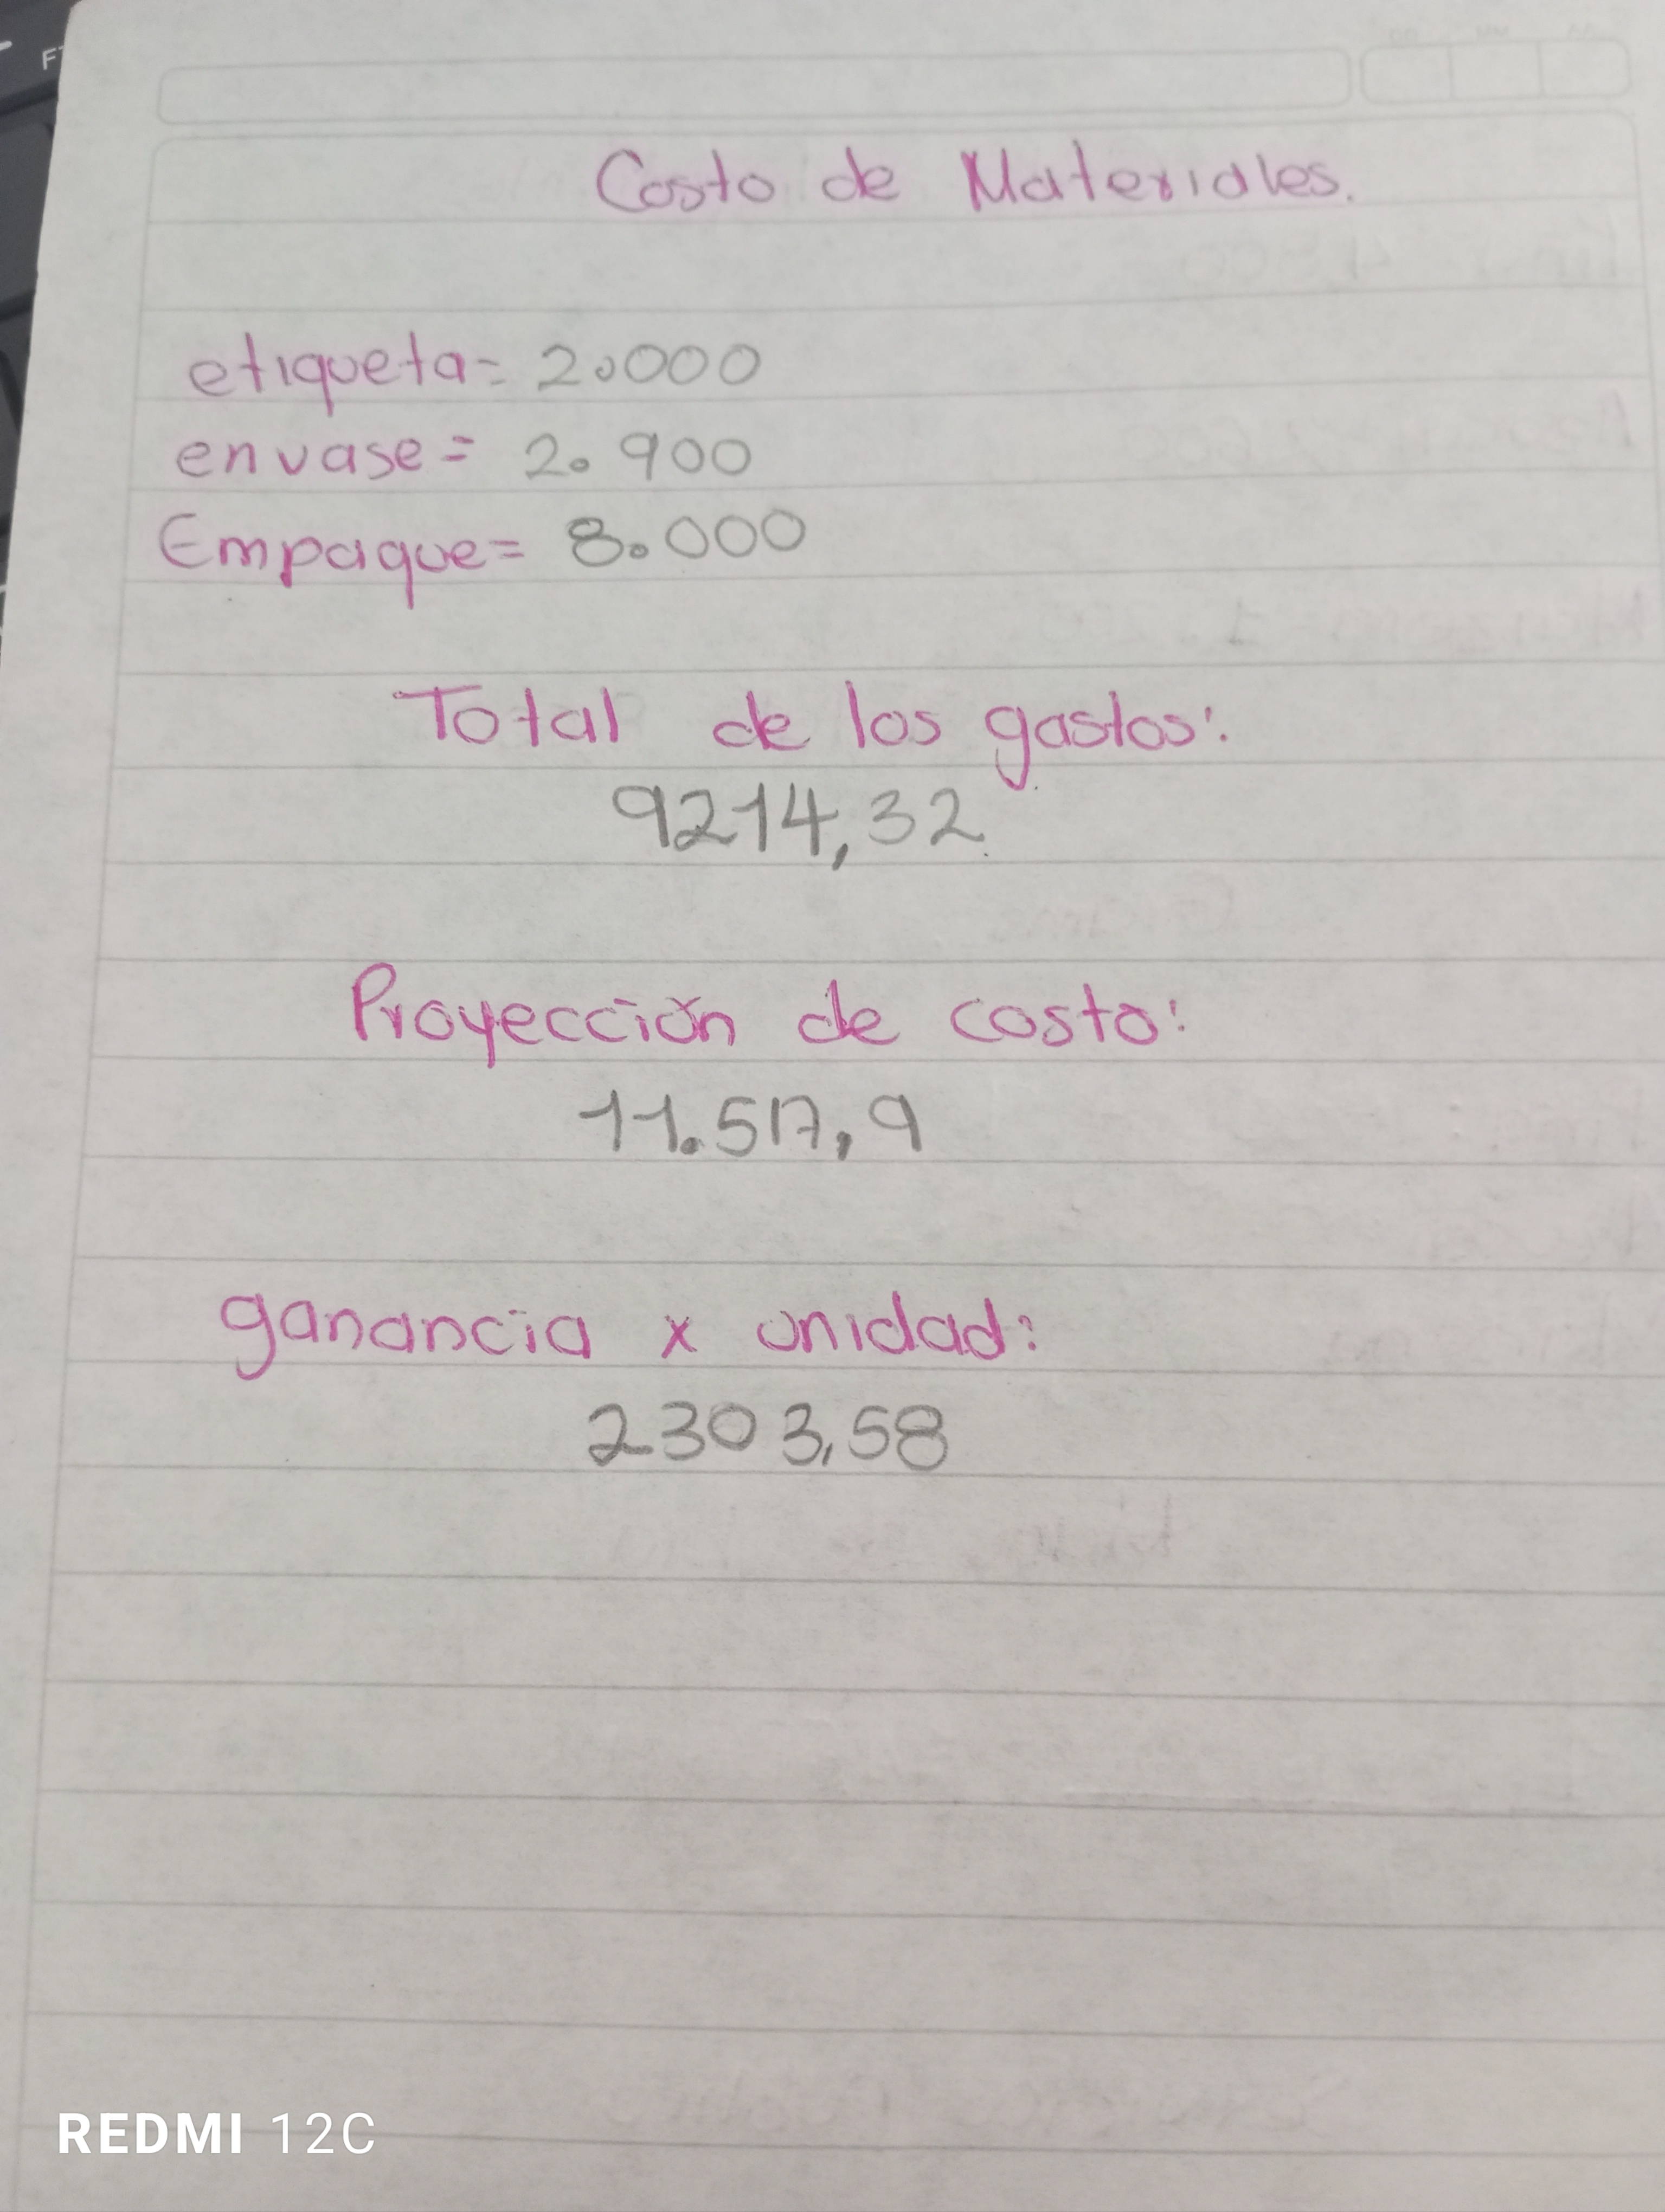 Costo de Materiales.
etiqueta= 2.000
envase= 2.900
Empaque= 8.000
Total de los gastos:
9214,32
Proyección de costo:
11.517,9
ganancia x unidad:
2303,58
REDMI 12C